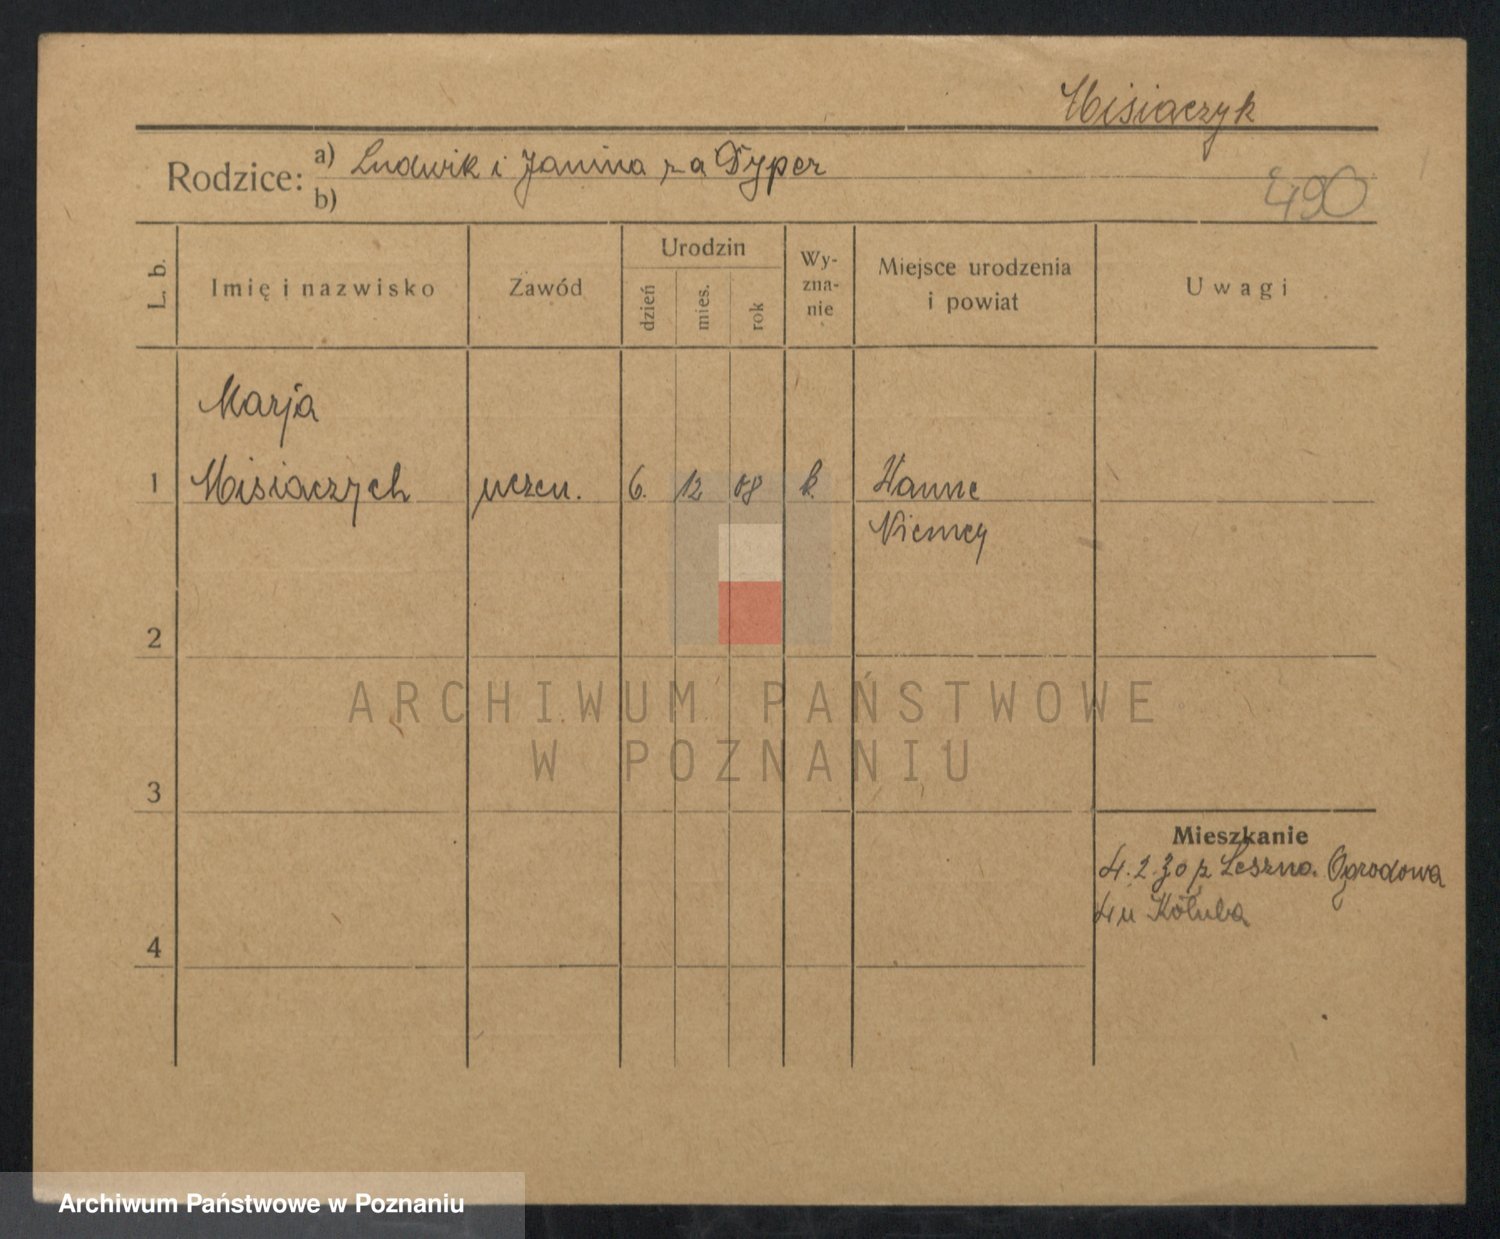 Misiaczyk
Rodzice: a) Ludwik i Janina z a Pyper
b)
490
L. b.
Imię i nazwisko
Zawód
Urodzin
dzień
mies.
rok
Wy-
zna-
nie
Miejsce urodzenia
i powiat
Uwagi
Marja
1 Misiaczych uczen. 6. 12 08 k. Hanne
Niemcy
2
ARCHIWUM PAŃSTWOWE
W POZNANIU
3
Mieszkanie
4. 2. 30 p. Leszno. Ogrodowa
4 u Kołuba
4
Archiwum Państwowe w Poznaniu